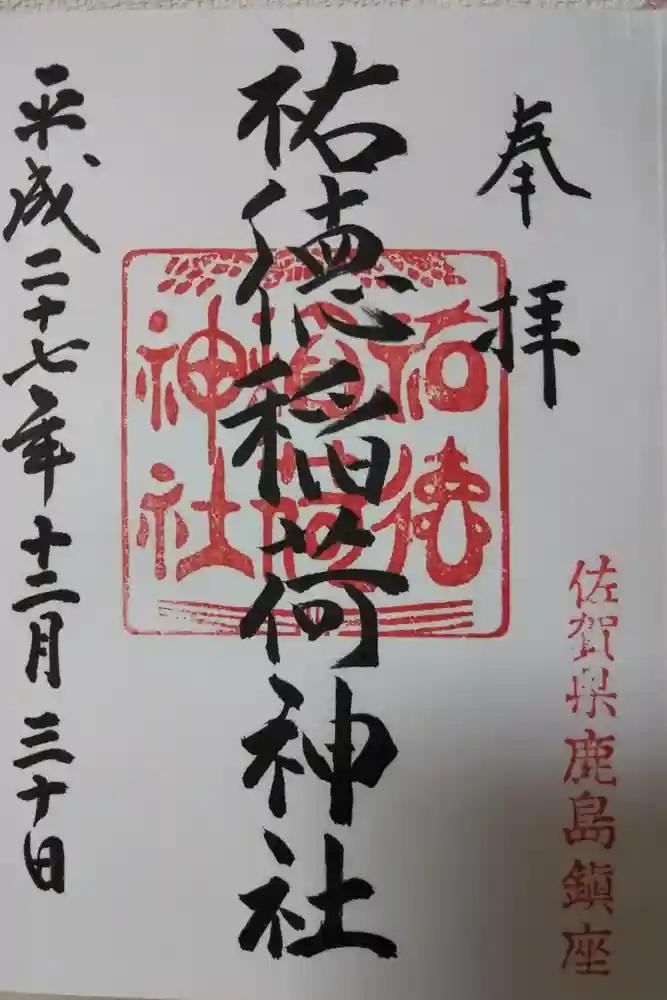 奉拝
佐賀県鹿島鎮座
祐徳稲荷神社
祐徳
稲荷
神社
平成二十七年十二月三十日